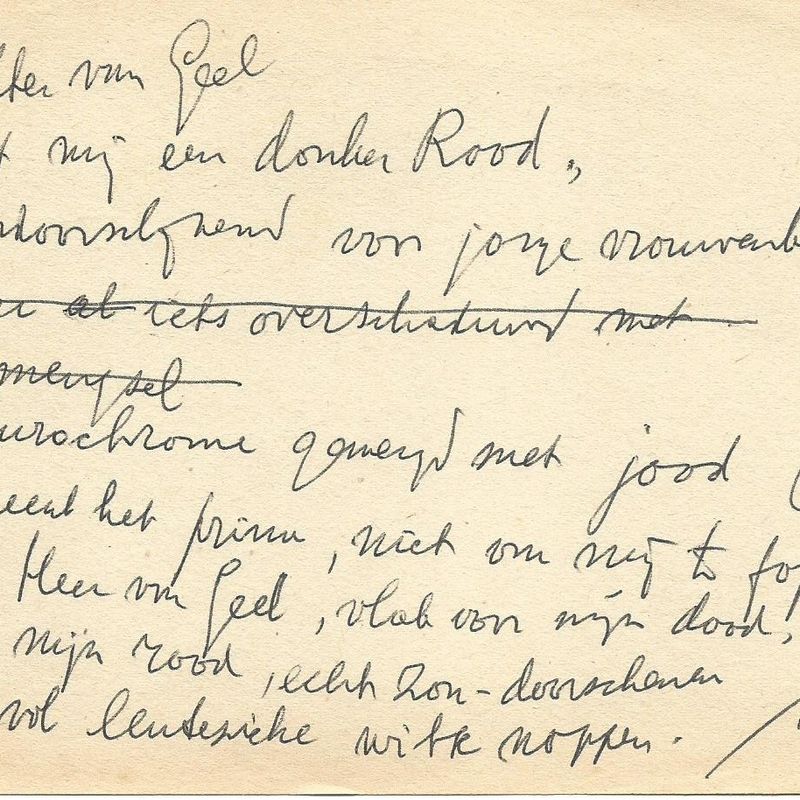 van Geel
mij een donker Rood,,
voor jonge vrouwen
iets overschaduwd met
mengsel
urochrome gemengd met jood
het prima, niet om mij te
Heer van Geel, vlak voor mijn dood,
mijn rood, echt zon-doorschenen
vol lenteziche witte noppen.